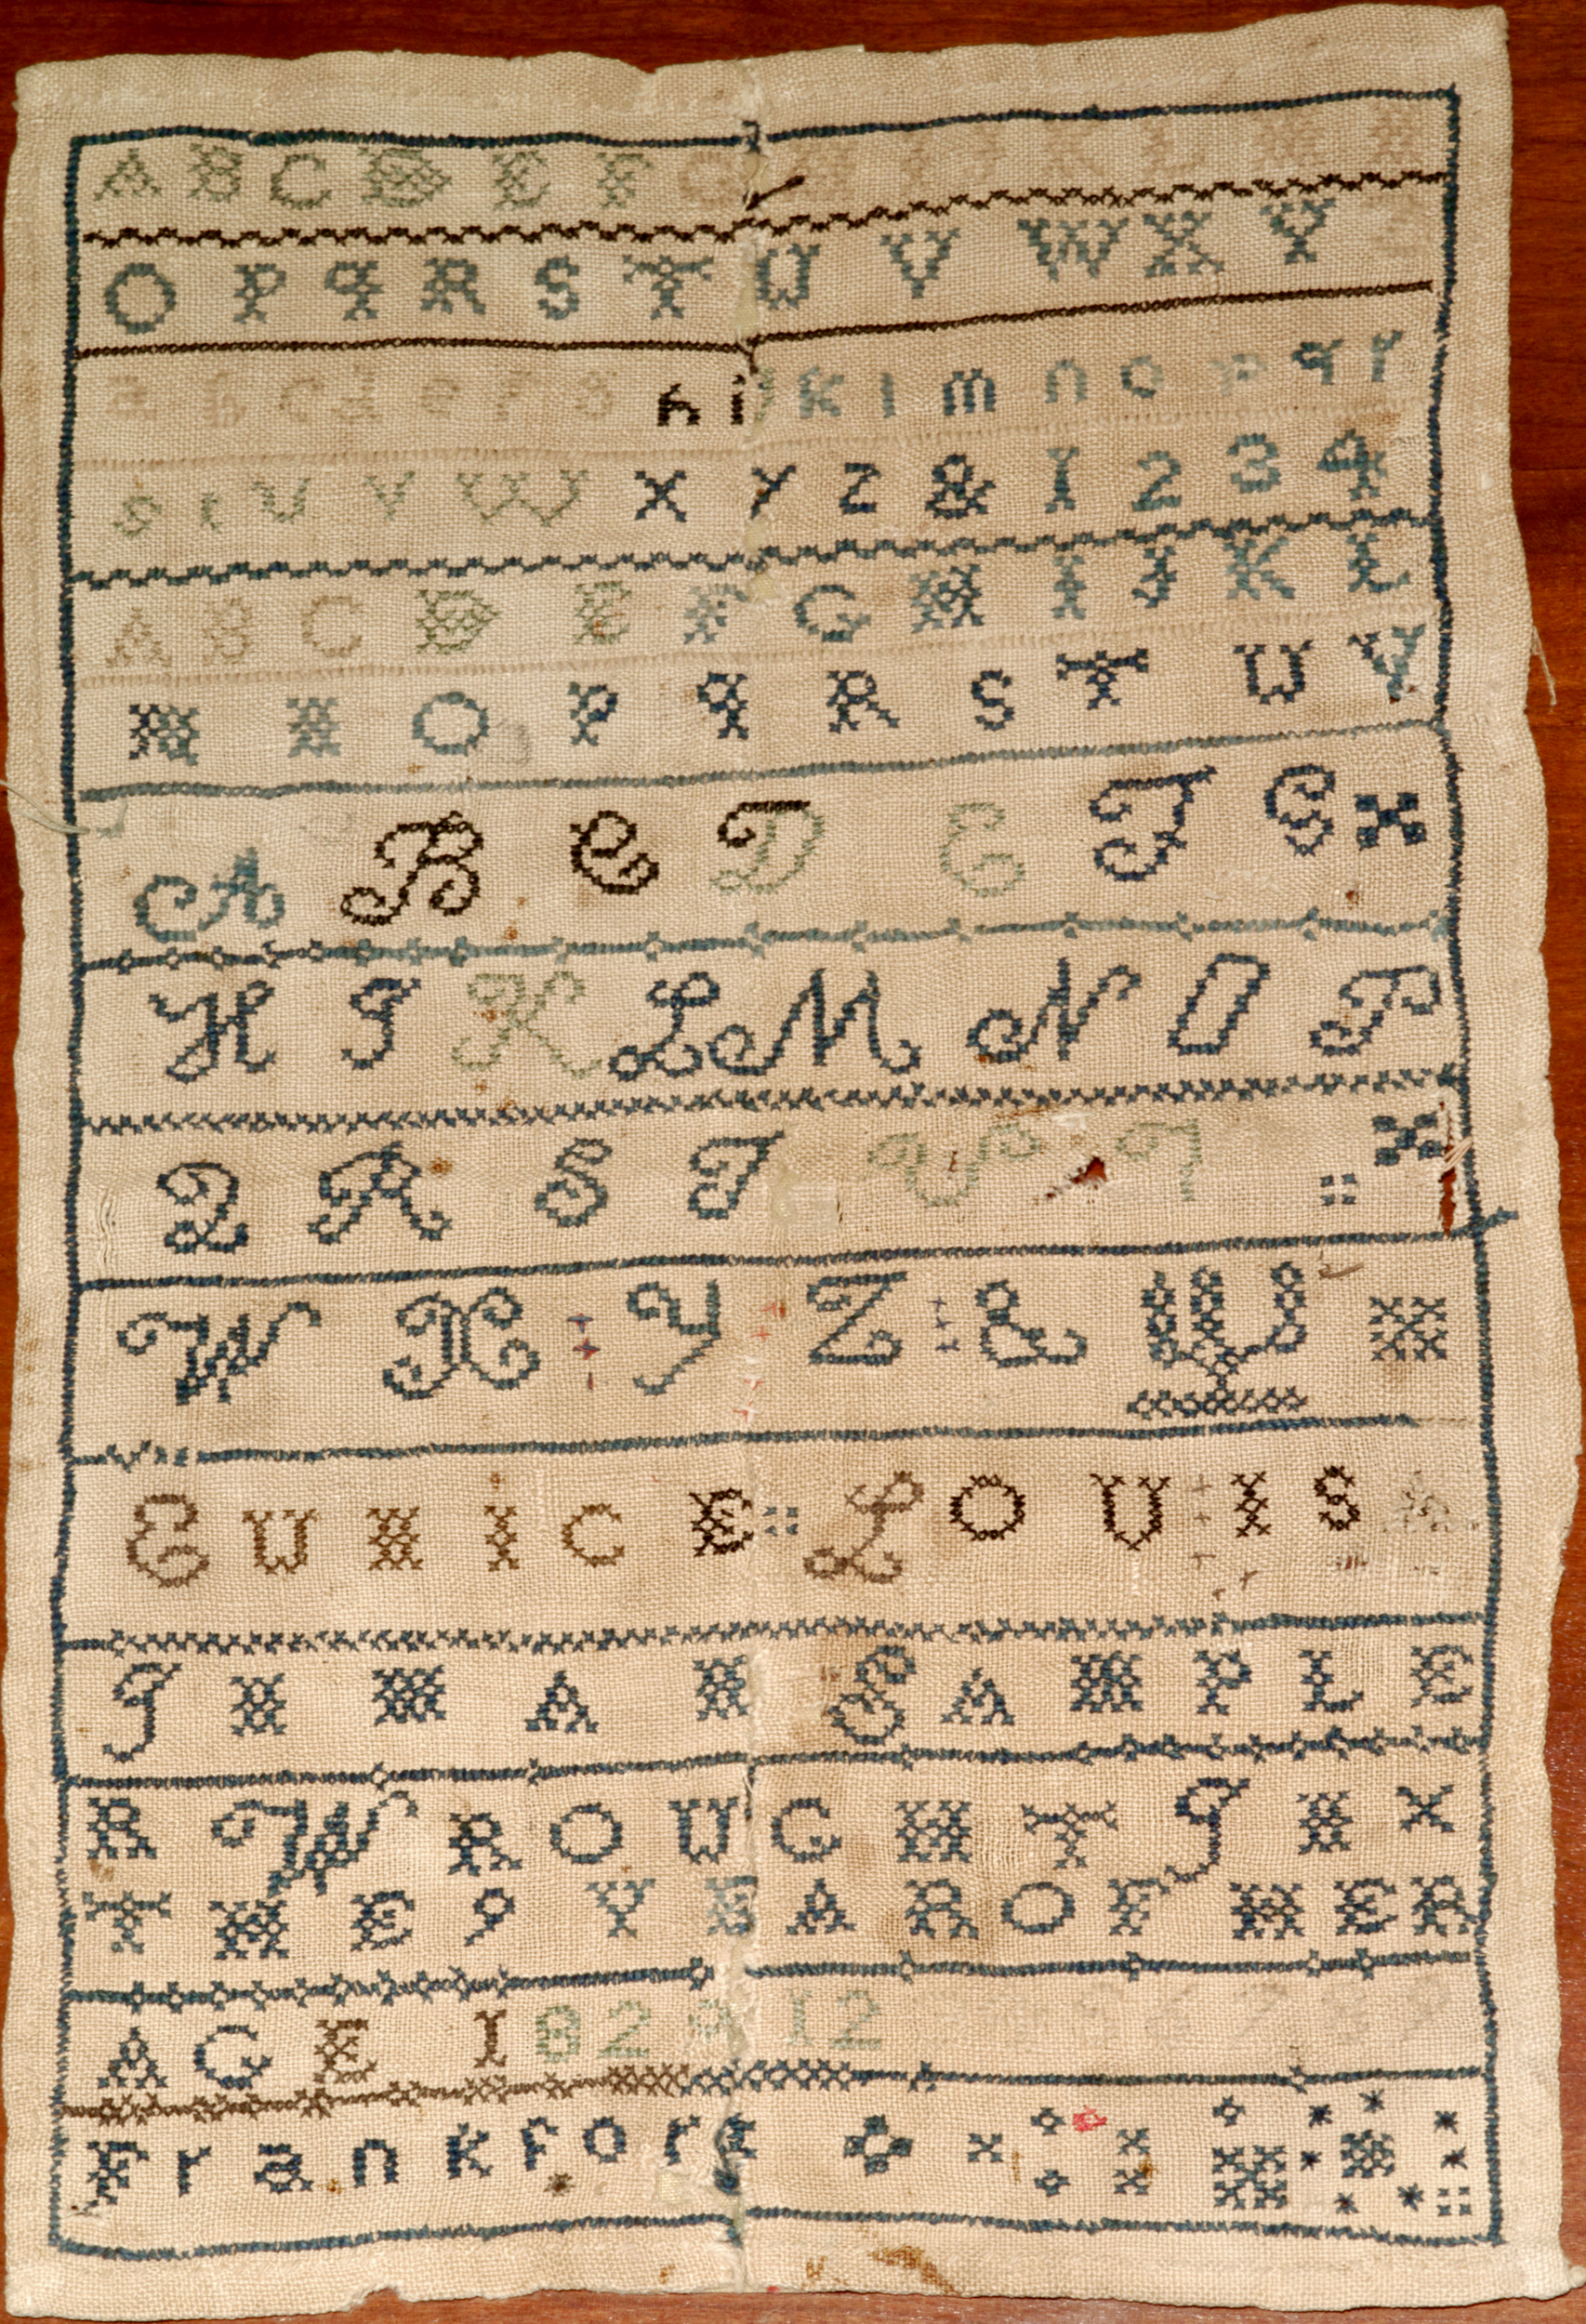 A B C D E F G H I J K L M N
O P Q R S T U V W X Y Z
a b c d e f g h i j k l m n o p q r
s t u v w x y z & 1 2 3 4
A B C D E F G H I J K L
M N O P Q R S T U V
A B C D E F G
H I K L M N O P
Q R S T U V
W X Y Z & W
EUNICE :: LOUISA
INMAN SAMPLE
R WROUGHT IN X
THE 9 YEAR OF HER
AGE 12
Frankfort